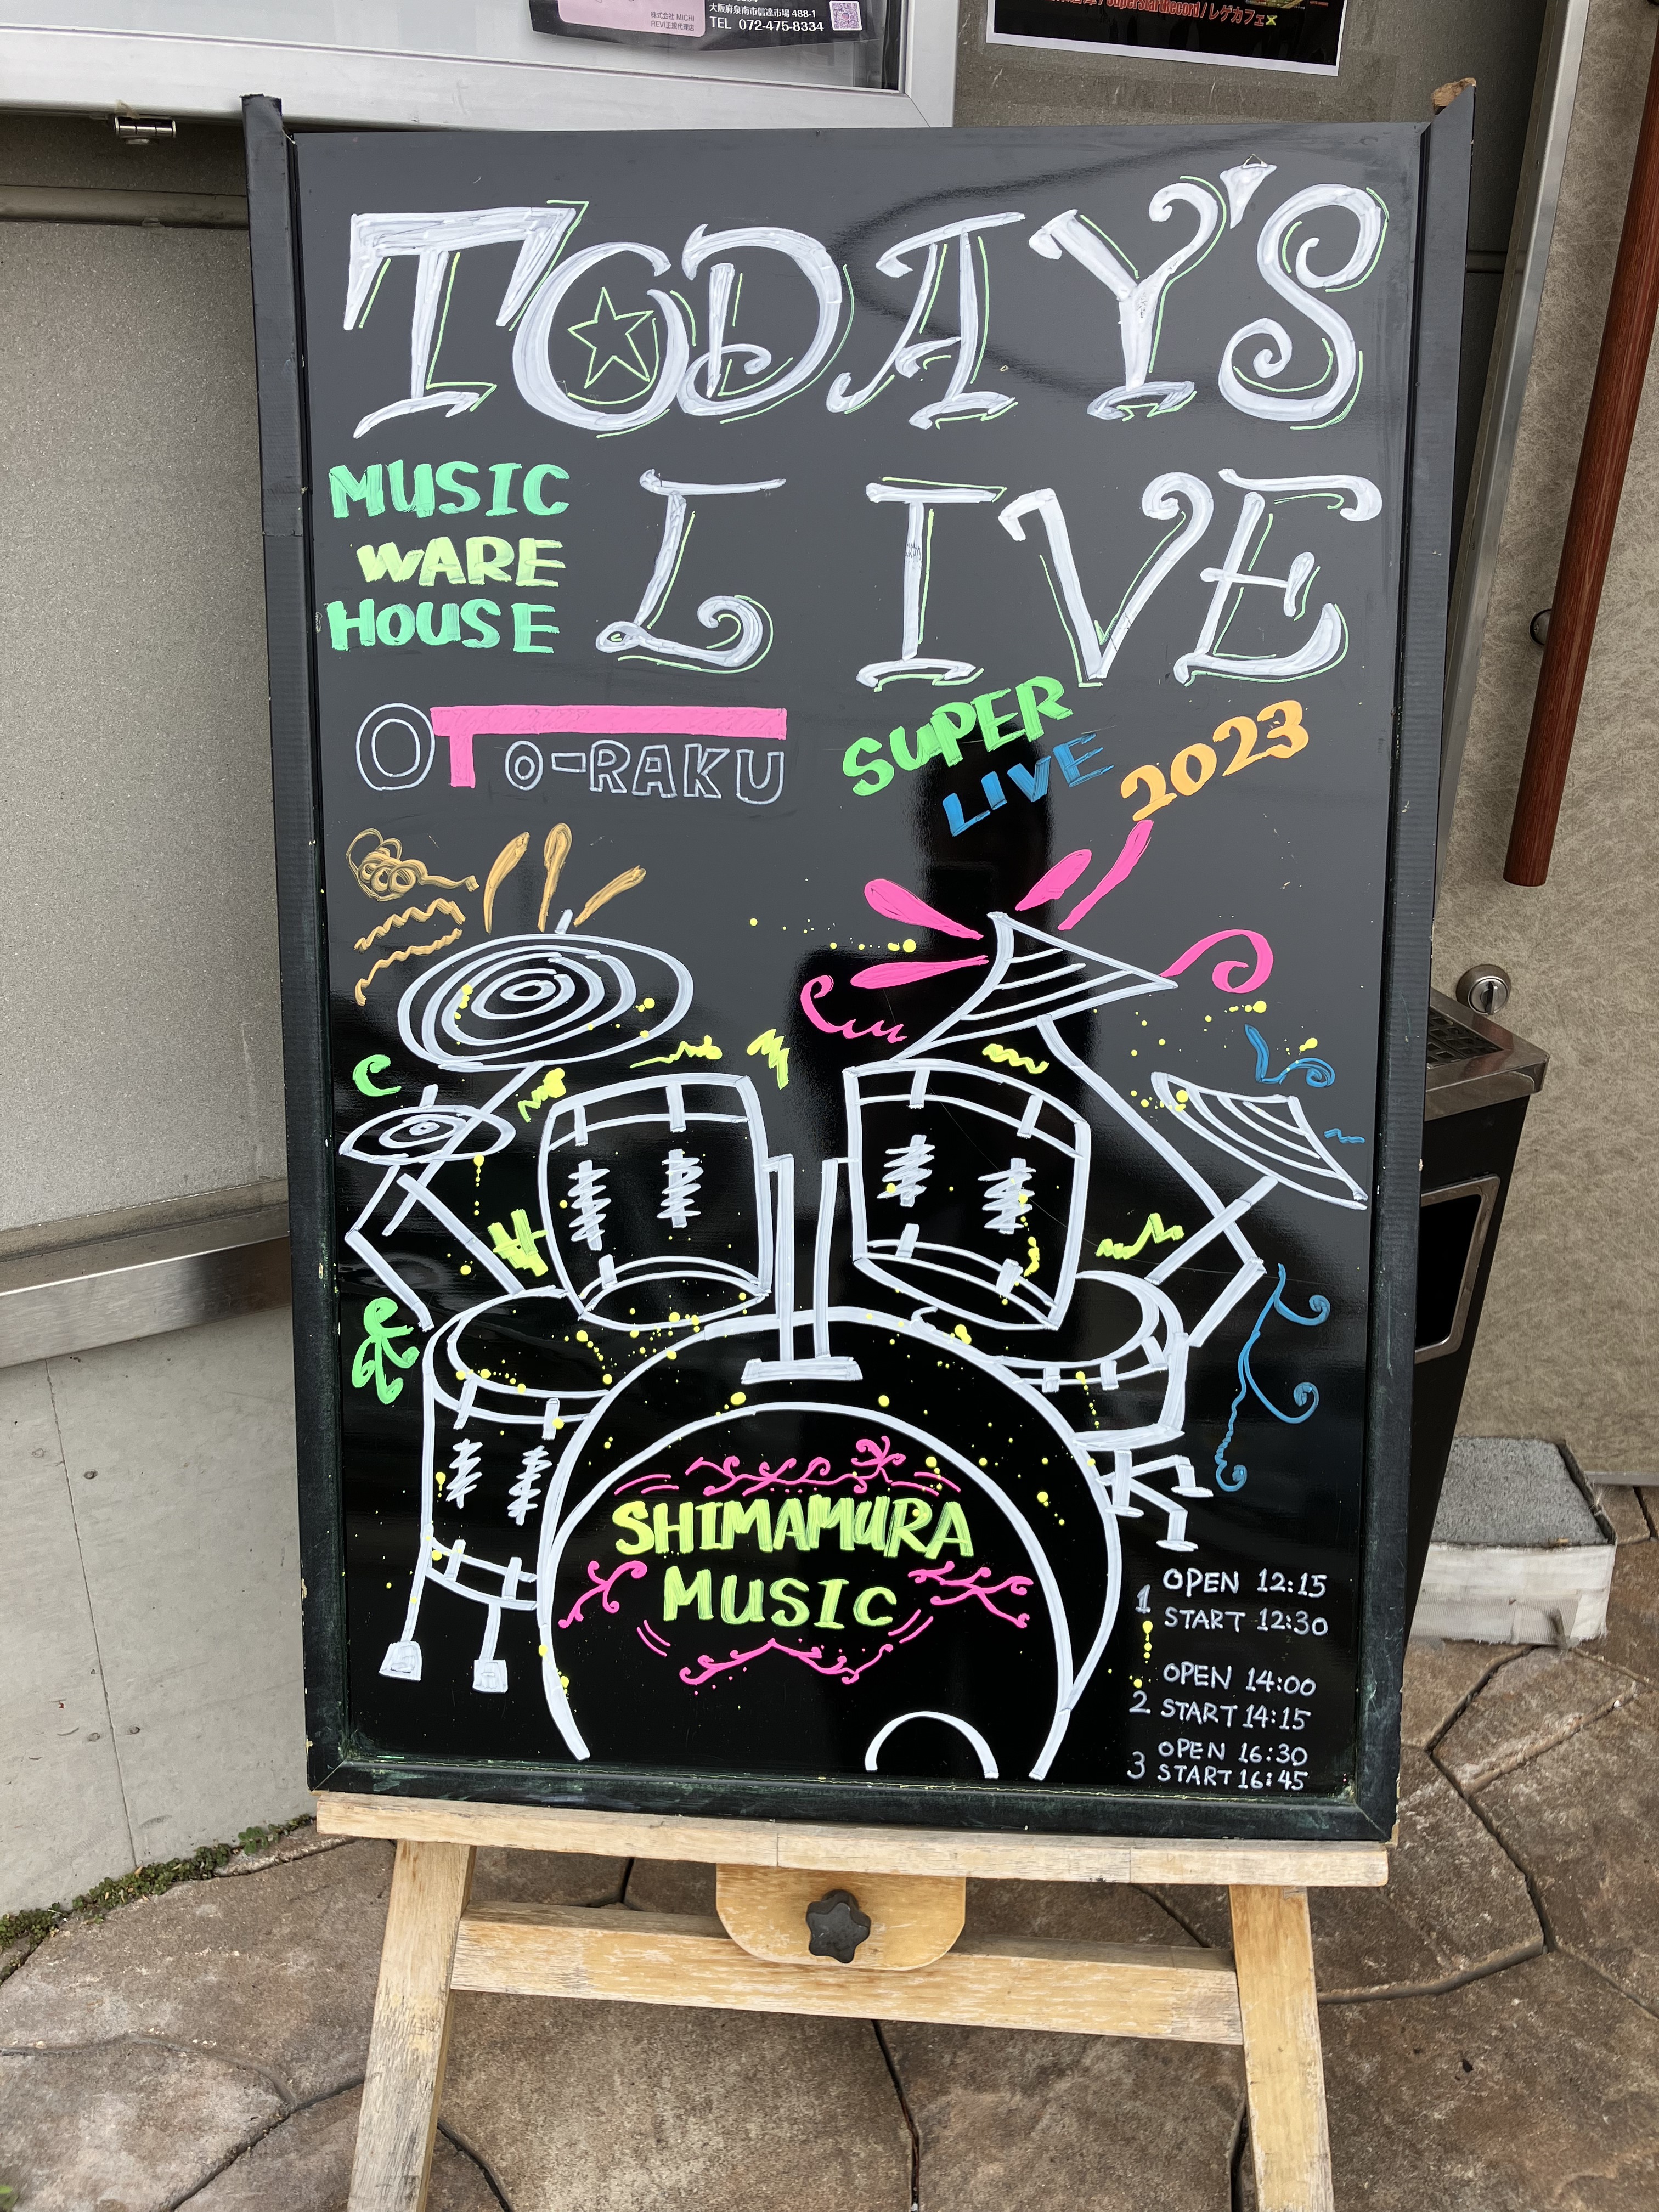 株式会社 MICHI
REVI正規代理店
大阪府泉南市信達市場 488-1
TEL 072-475-8334
SuperStarRecord / レゲカフェ
TODAY'S
MUSIC
WARE
HOUSE
LIVE
OTO-RAKU
SUPER
LIVE
2023
SHIMAMURA
MUSIC
1 OPEN 12:15
START 12:30
2 OPEN 14:00
START 14:15
3 OPEN 16:30
START 16:45